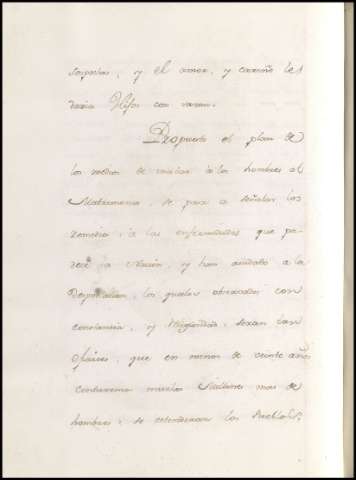 , y el amor, y cariño les
daria Hijos con
Propuesto el plan de
los medios de á los hombres al
Matrimonio, se pasa á señalar los
remedios á las enfermedades que pa-
dece la Nacion, y han ayudado a la
Despoblacion, los quales observados con
constancia, y seran tan
que en menos de veinte años
contaremos muchos Millones mas de
hombres, se estenderan los Pueblos,